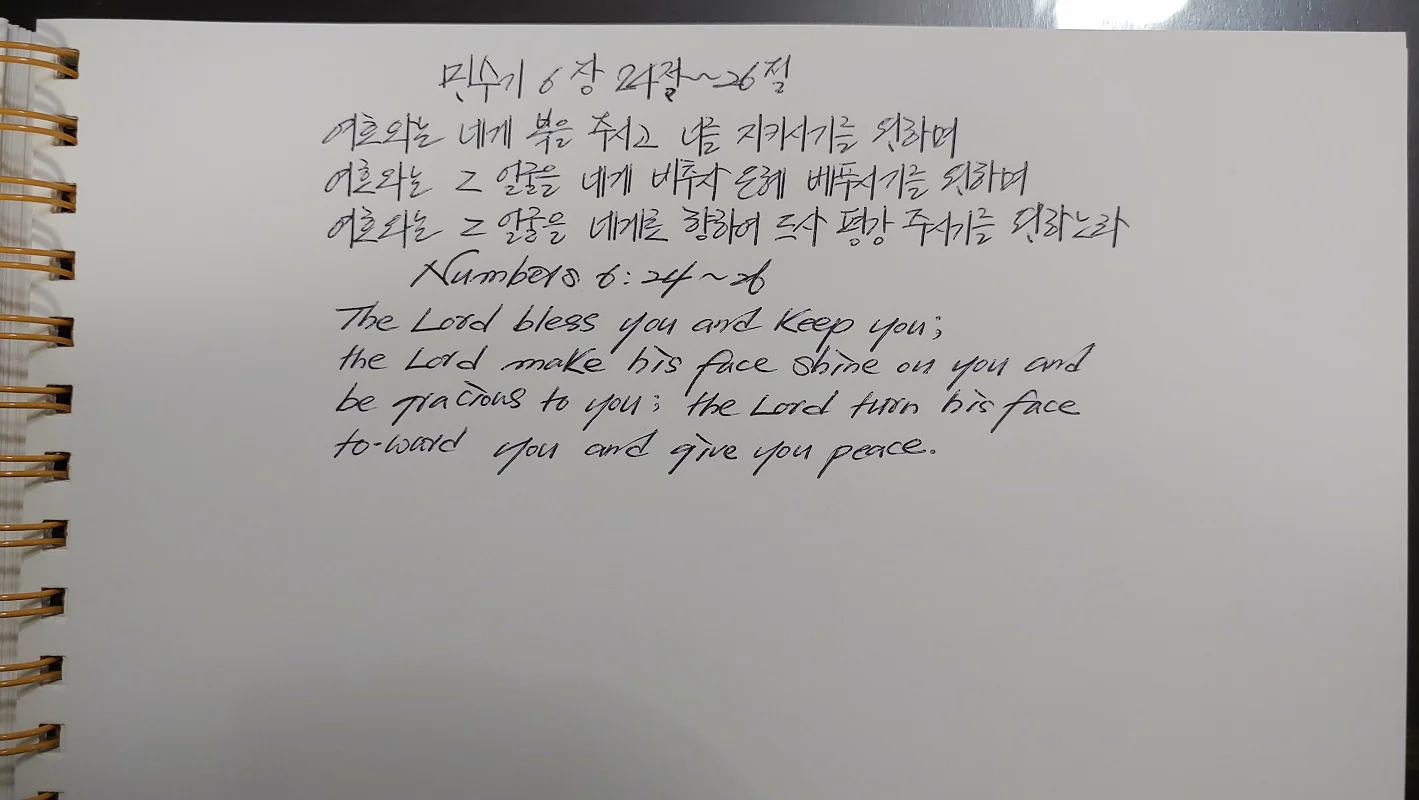 민수기 6장 24절~26절
여호와는 네게 복을 주시고 너를 지키시기를 원하며
여호와는 그 얼굴을 네게 비추사 은혜 베푸시기를 원하며
여호와는 그 얼굴을 네게로 향하여 드사 평강 주시기를 원하노라
Numbers 6:24~26
The Lord bless you and Keep you;
the Lord make his face shine on you and
be gracious to you; the Lord turn his face
to-ward you and give you peace.